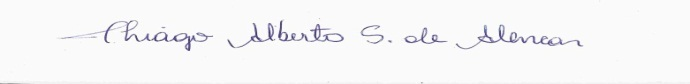 Thiago Alberto S. de Alencar